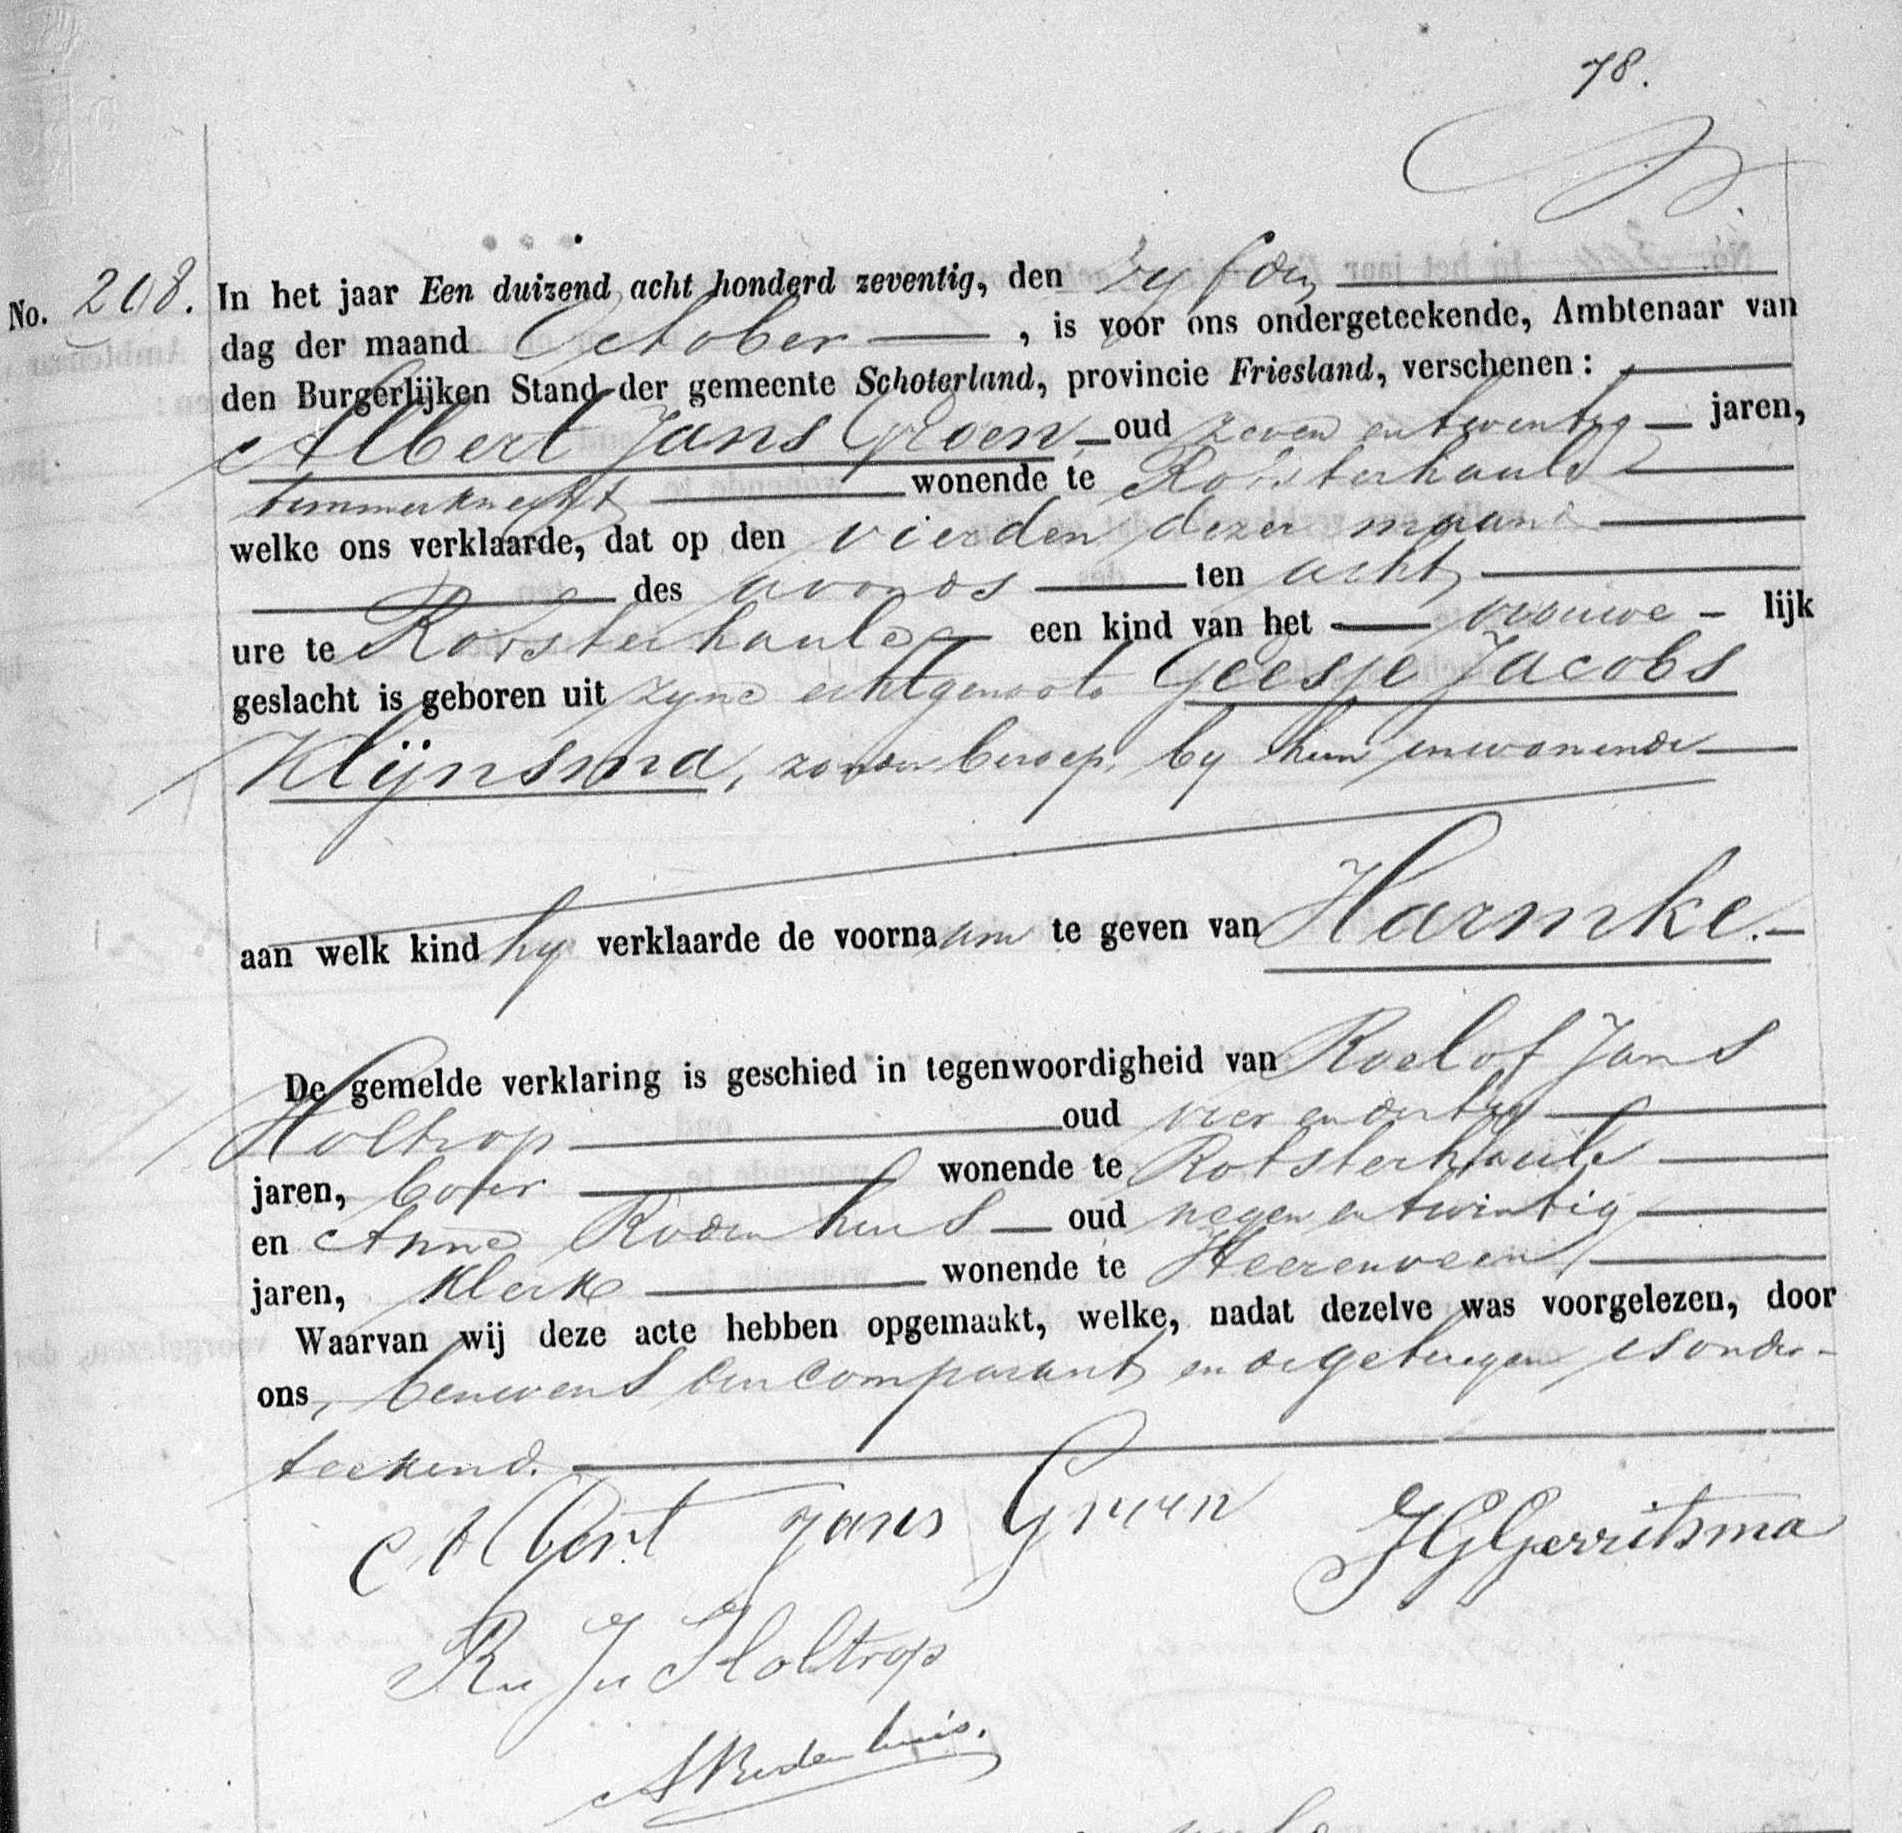 78.
No. 208. In het jaar Een duizend acht honderd zeventig, den vyfden
dag der maand October, is voor ons ondergeteekende, Ambtenaar van
den Burgerlijken Stand der gemeente Schoterland, provincie Friesland, verschenen:
Albert Jans Groen, oud zeven en twintig jaren,
timmerknecht wonende te Rotsterhaule
welke ons verklaarde, dat op den vierden dezer maand
des avonds ten acht
ure te Rotsterhaule een kind van het vrouwe-lijk
geslacht is geboren uit zyne echtgenoote Geesje Jacobs
Klijnsma, zonder beroep, by hem inwonende
aan welk kind hy verklaarde de voornaam te geven van Harmke.
De gemelde verklaring is geschied in tegenwoordigheid van Roelof Jans
Holtrop oud vier en dertig
jaren, boer wonende te Rotsterhaule
en Anne Rodenhuis oud negen en twintig
jaren, klerk wonende te Heerenveen,
Waarvan wij deze acte hebben opgemaakt, welke, nadat dezelve was voorgelezen, door
ons, benevens den comparant en de getuigen is onder-
teekend.
Albert Jans Groen
JGGerritsma
Ru Ju Holtrop
ARodenhuis.